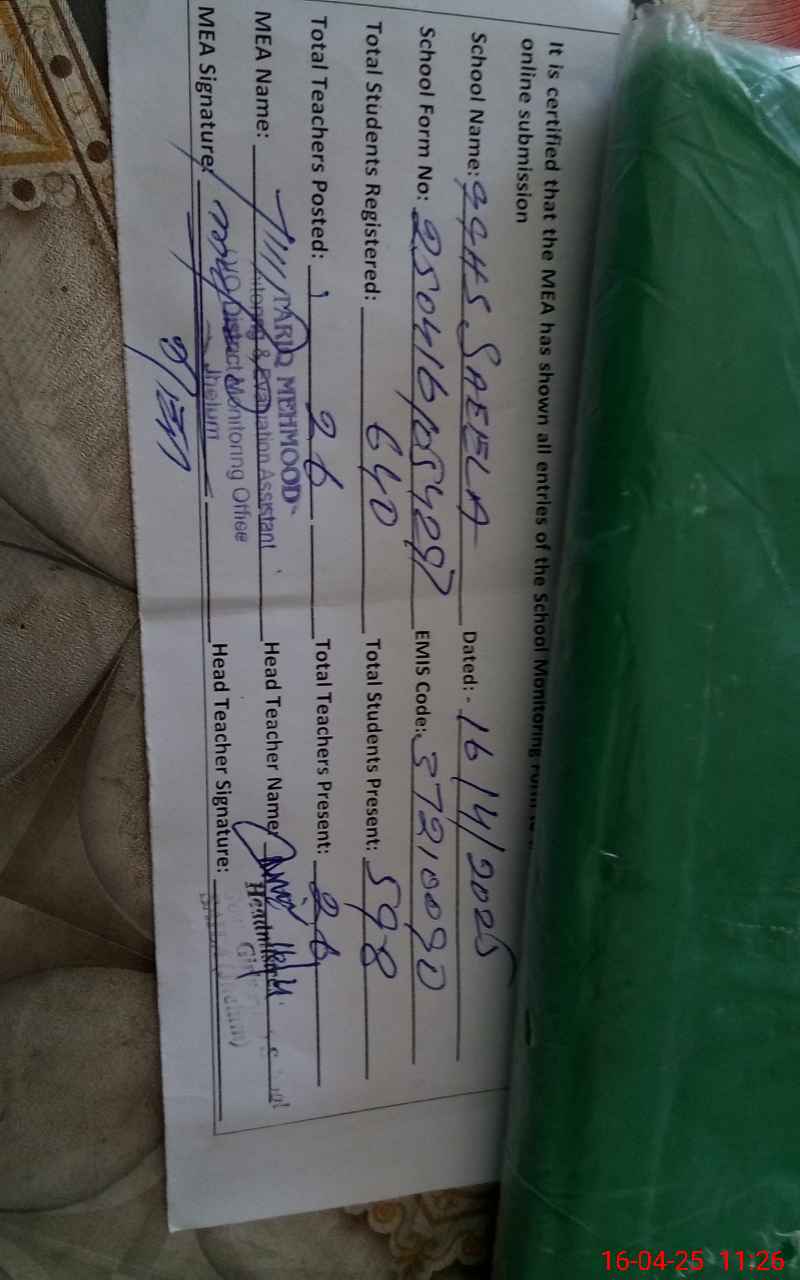 It is certified that the MEA has shown all entries of the School Monitoring Form
online submission
School Name: GGHS SAEELA Dated: - 16/4/2025
School Form No: 2504161054297 EMIS Code: 37210090
Total Students Registered: 640 Total Students Present: 598
Total Teachers Posted: 26 Total Teachers Present: 26
MEA Name: TARIQ MEHMOOD Head Teacher Name:
Monitoring & Evaluation Assistant
District Monitoring Office
Jhelum
MEA Signature: Head Teacher Signature:
16-04-25 11:26